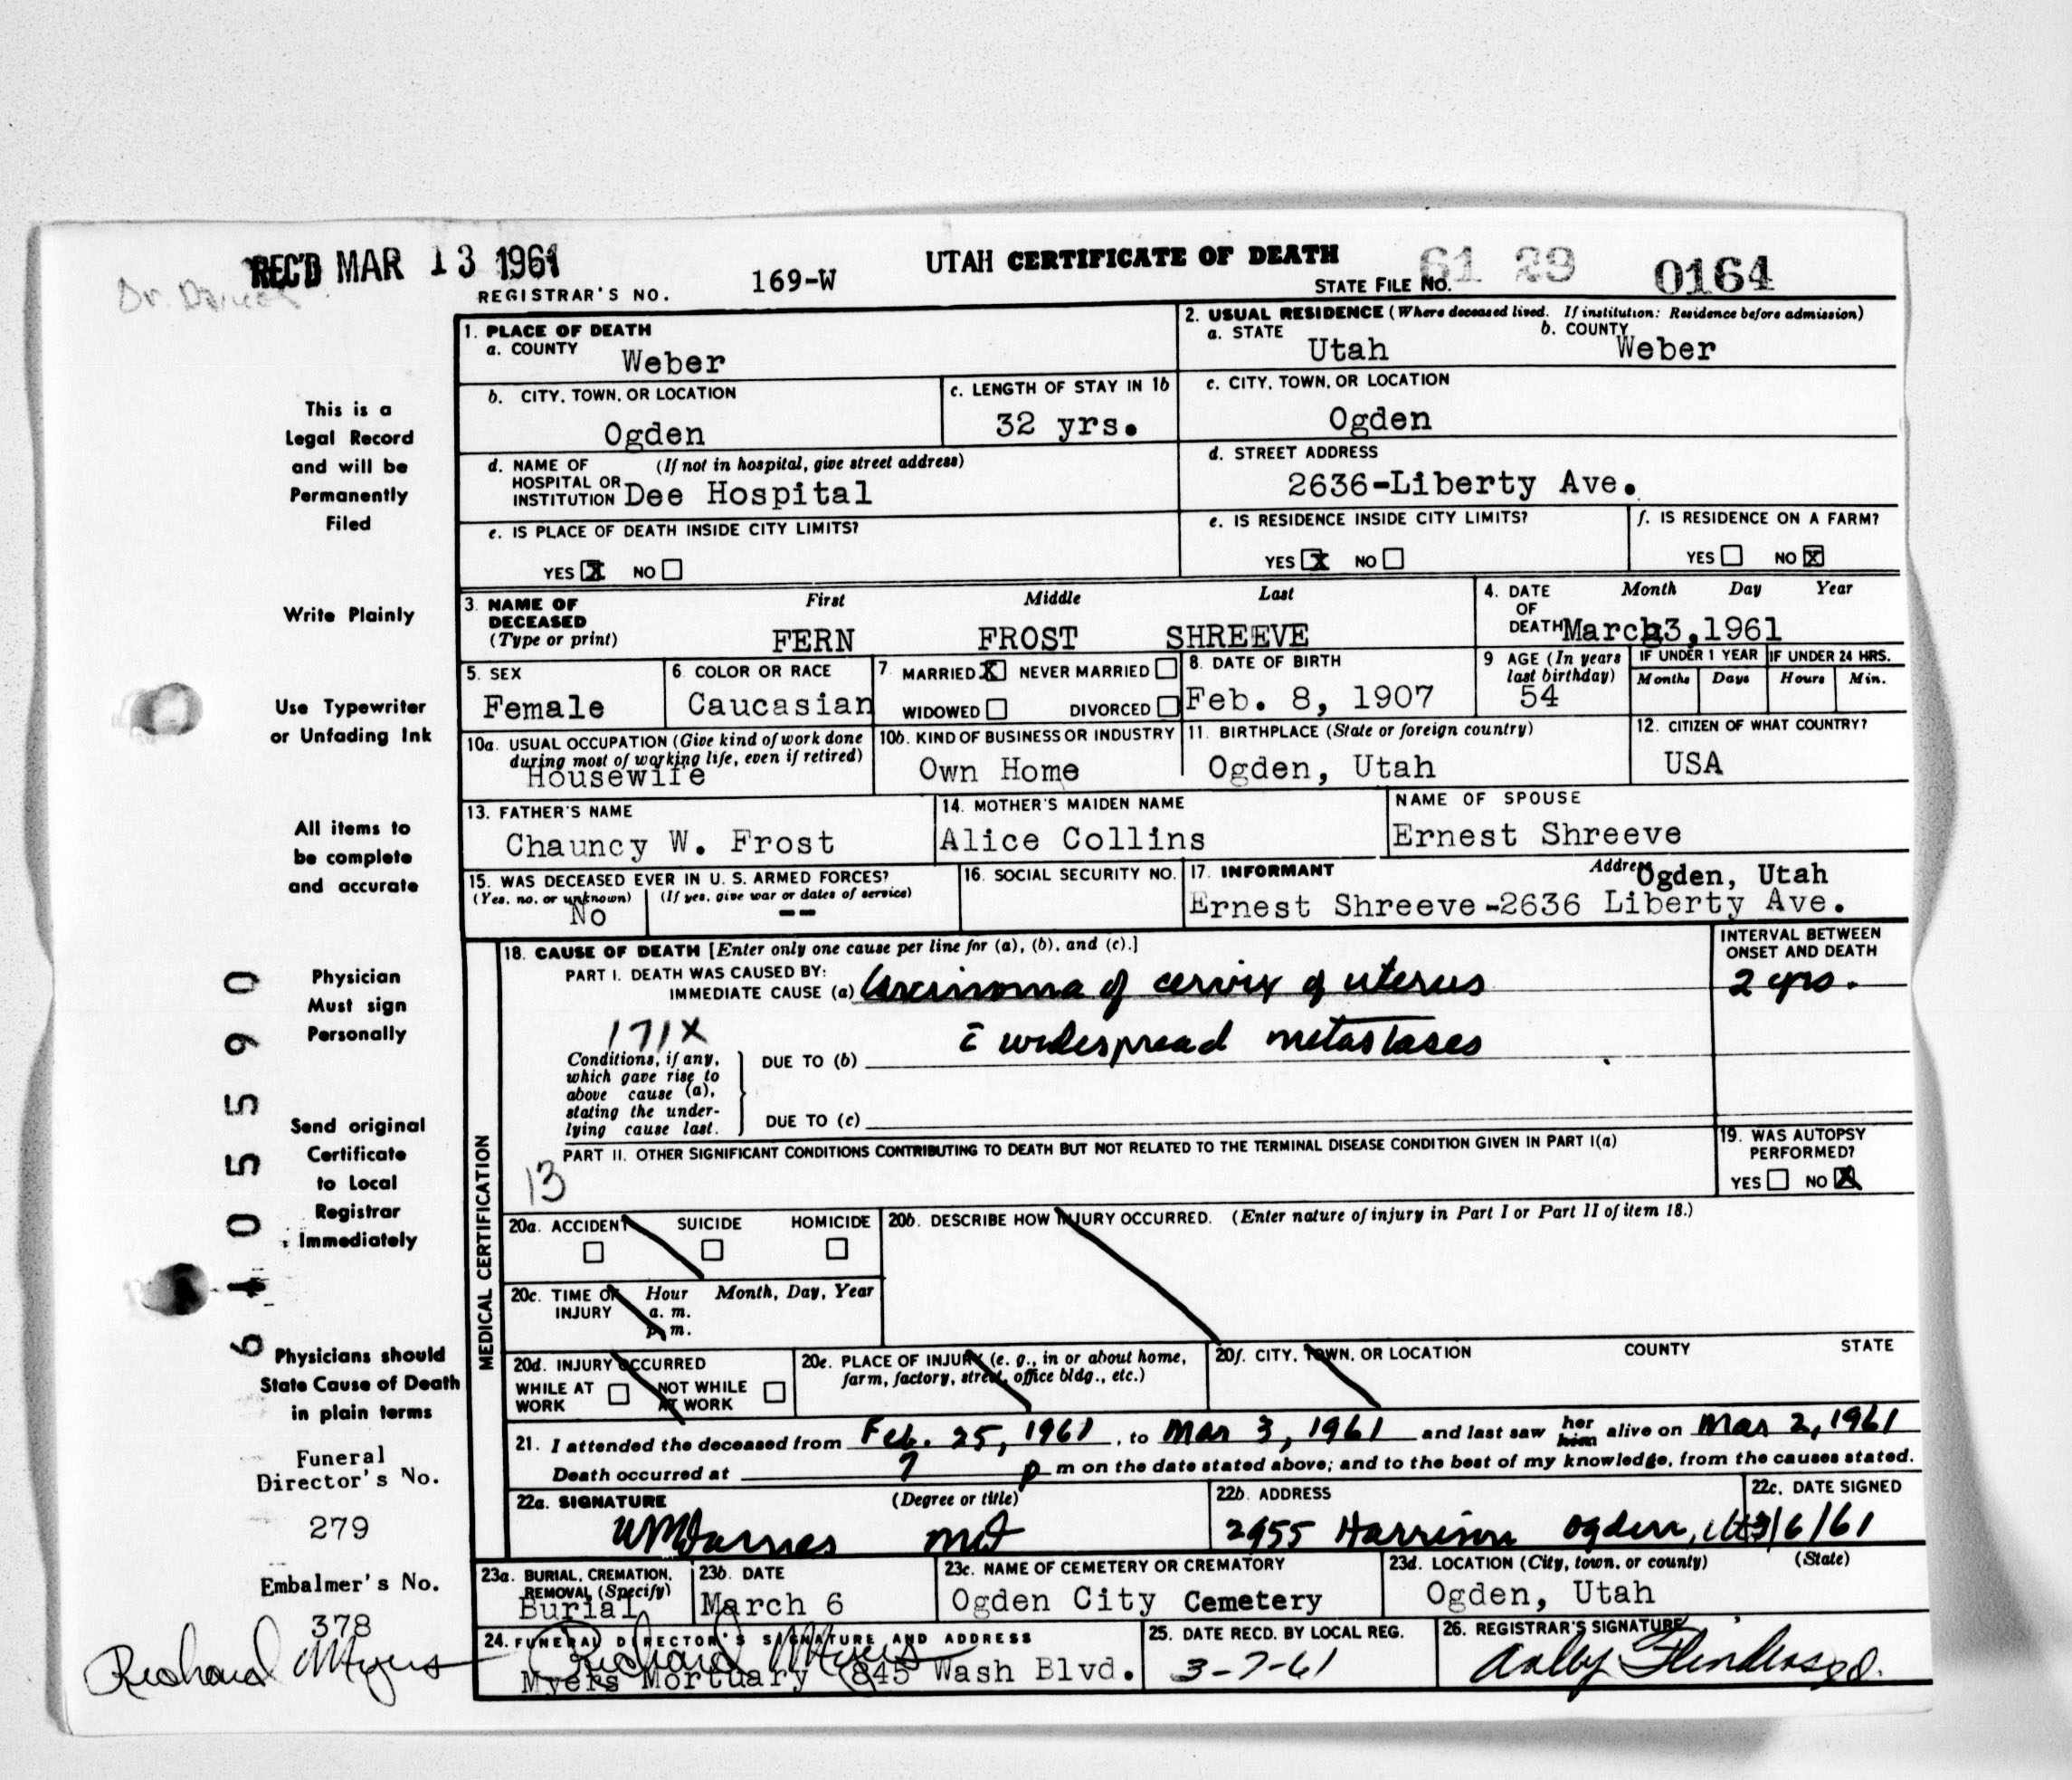 REC'D MAR 13 1961
169-W
UTAH CERTIFICATE OF DEATH
61 29 0164
REGISTRAR'S NO.
STATE FILE NO.
1. PLACE OF DEATH
a. COUNTY
Weber
2. USUAL RESIDENCE (Where deceased lived. If institution: Residence before admission)
a. STATE
b. COUNTY
Utah
Weber
b. CITY, TOWN, OR LOCATION
Ogden
c. LENGTH OF STAY IN 1b
32 yrs.
c. CITY, TOWN, OR LOCATION
Ogden
d. NAME OF (If not in hospital, give street address)
HOSPITAL OR
INSTITUTION Dee Hospital
d. STREET ADDRESS
2636-Liberty Ave.
e. IS PLACE OF DEATH INSIDE CITY LIMITS?
YES X NO
e. IS RESIDENCE INSIDE CITY LIMITS?
YES X NO
f. IS RESIDENCE ON A FARM?
YES NO X
3. NAME OF
DECEASED
(Type or print)
First Middle Last
FERN FROST SHREEVE
4. DATE Month Day Year
OF
DEATH March 3, 1961
5. SEX
Female
6 COLOR OR RACE
Caucasian
7 MARRIED X NEVER MARRIED
WIDOWED DIVORCED
8. DATE OF BIRTH
Feb. 8, 1907
9 AGE (In years
last birthday)
54
IF UNDER 1 YEAR
Months Days
IF UNDER 24 HRS.
Hours Min.
10a. USUAL OCCUPATION (Give kind of work done
during most of working life, even if retired)
Housewife
10b. KIND OF BUSINESS OR INDUSTRY
Own Home
11. BIRTHPLACE (State or foreign country)
Ogden, Utah
12. CITIZEN OF WHAT COUNTRY?
USA
13. FATHER'S NAME
Chauncy W. Frost
14. MOTHER'S MAIDEN NAME
Alice Collins
NAME OF SPOUSE
Ernest Shreeve
15. WAS DECEASED EVER IN U. S. ARMED FORCES?
(Yes, no, or unknown) (If yes, give war or dates of service)
No --
16. SOCIAL SECURITY NO.
17. INFORMANT Address Ogden, Utah
Ernest Shreeve-2636 Liberty Ave.
MEDICAL CERTIFICATION
18. CAUSE OF DEATH [Enter only one cause per line for (a), (b), and (c).]
INTERVAL BETWEEN
ONSET AND DEATH
PART I. DEATH WAS CAUSED BY:
IMMEDIATE CAUSE (a) Carcinoma of cervix of uterus
2 yrs.
171X
c̄ widespread metastases
Conditions, if any,
which gave rise to
above cause (a),
stating the under-
lying cause last.
DUE TO (b)
DUE TO (c)
PART II. OTHER SIGNIFICANT CONDITIONS CONTRIBUTING TO DEATH BUT NOT RELATED TO THE TERMINAL DISEASE CONDITION GIVEN IN PART I(a)
13
19. WAS AUTOPSY
PERFORMED?
YES NO X
20a. ACCIDENT SUICIDE HOMICIDE
20b. DESCRIBE HOW INJURY OCCURRED. (Enter nature of injury in Part I or Part II of item 18.)
20c. TIME OF Hour Month, Day, Year
INJURY a. m.
p. m.
20d. INJURY OCCURRED
WHILE AT NOT WHILE
WORK AT WORK
20e. PLACE OF INJURY (e. g., in or about home,
farm, factory, street, office bldg., etc.)
20f. CITY, TOWN, OR LOCATION COUNTY STATE
21. I attended the deceased from Feb. 25, 1961, to Mar 3, 1961 and last saw her him alive on Mar 2, 1961
Death occurred at 7 p m on the date stated above; and to the best of my knowledge, from the causes stated.
22a. SIGNATURE (Degree or title)
22b. ADDRESS
2955 Harrison Ogden, Ut
22c. DATE SIGNED
3/6/61
23a. BURIAL, CREMATION,
REMOVAL (Specify)
Burial
23b. DATE
March 6
23c. NAME OF CEMETERY OR CREMATORY
Ogden City Cemetery
23d. LOCATION (City, town, or county) (State)
Ogden, Utah
24. FUNERAL DIRECTOR'S SIGNATURE AND ADDRESS
Richard Myers
Myers Mortuary 845 Wash Blvd.
25. DATE RECD. BY LOCAL REG.
3-7-61
26. REGISTRAR'S SIGNATURE
This is a
Legal Record
and will be
Permanently
Filed
Write Plainly
Use Typewriter
or Unfading Ink
All items to
be complete
and accurate
Physician
Must sign
Personally
Send original
Certificate
to Local
Registrar
Immediately
Physicians should
State Cause of Death
in plain terms
Funeral
Director's No.
279
Embalmer's No.
378
Richard Myers
61055590